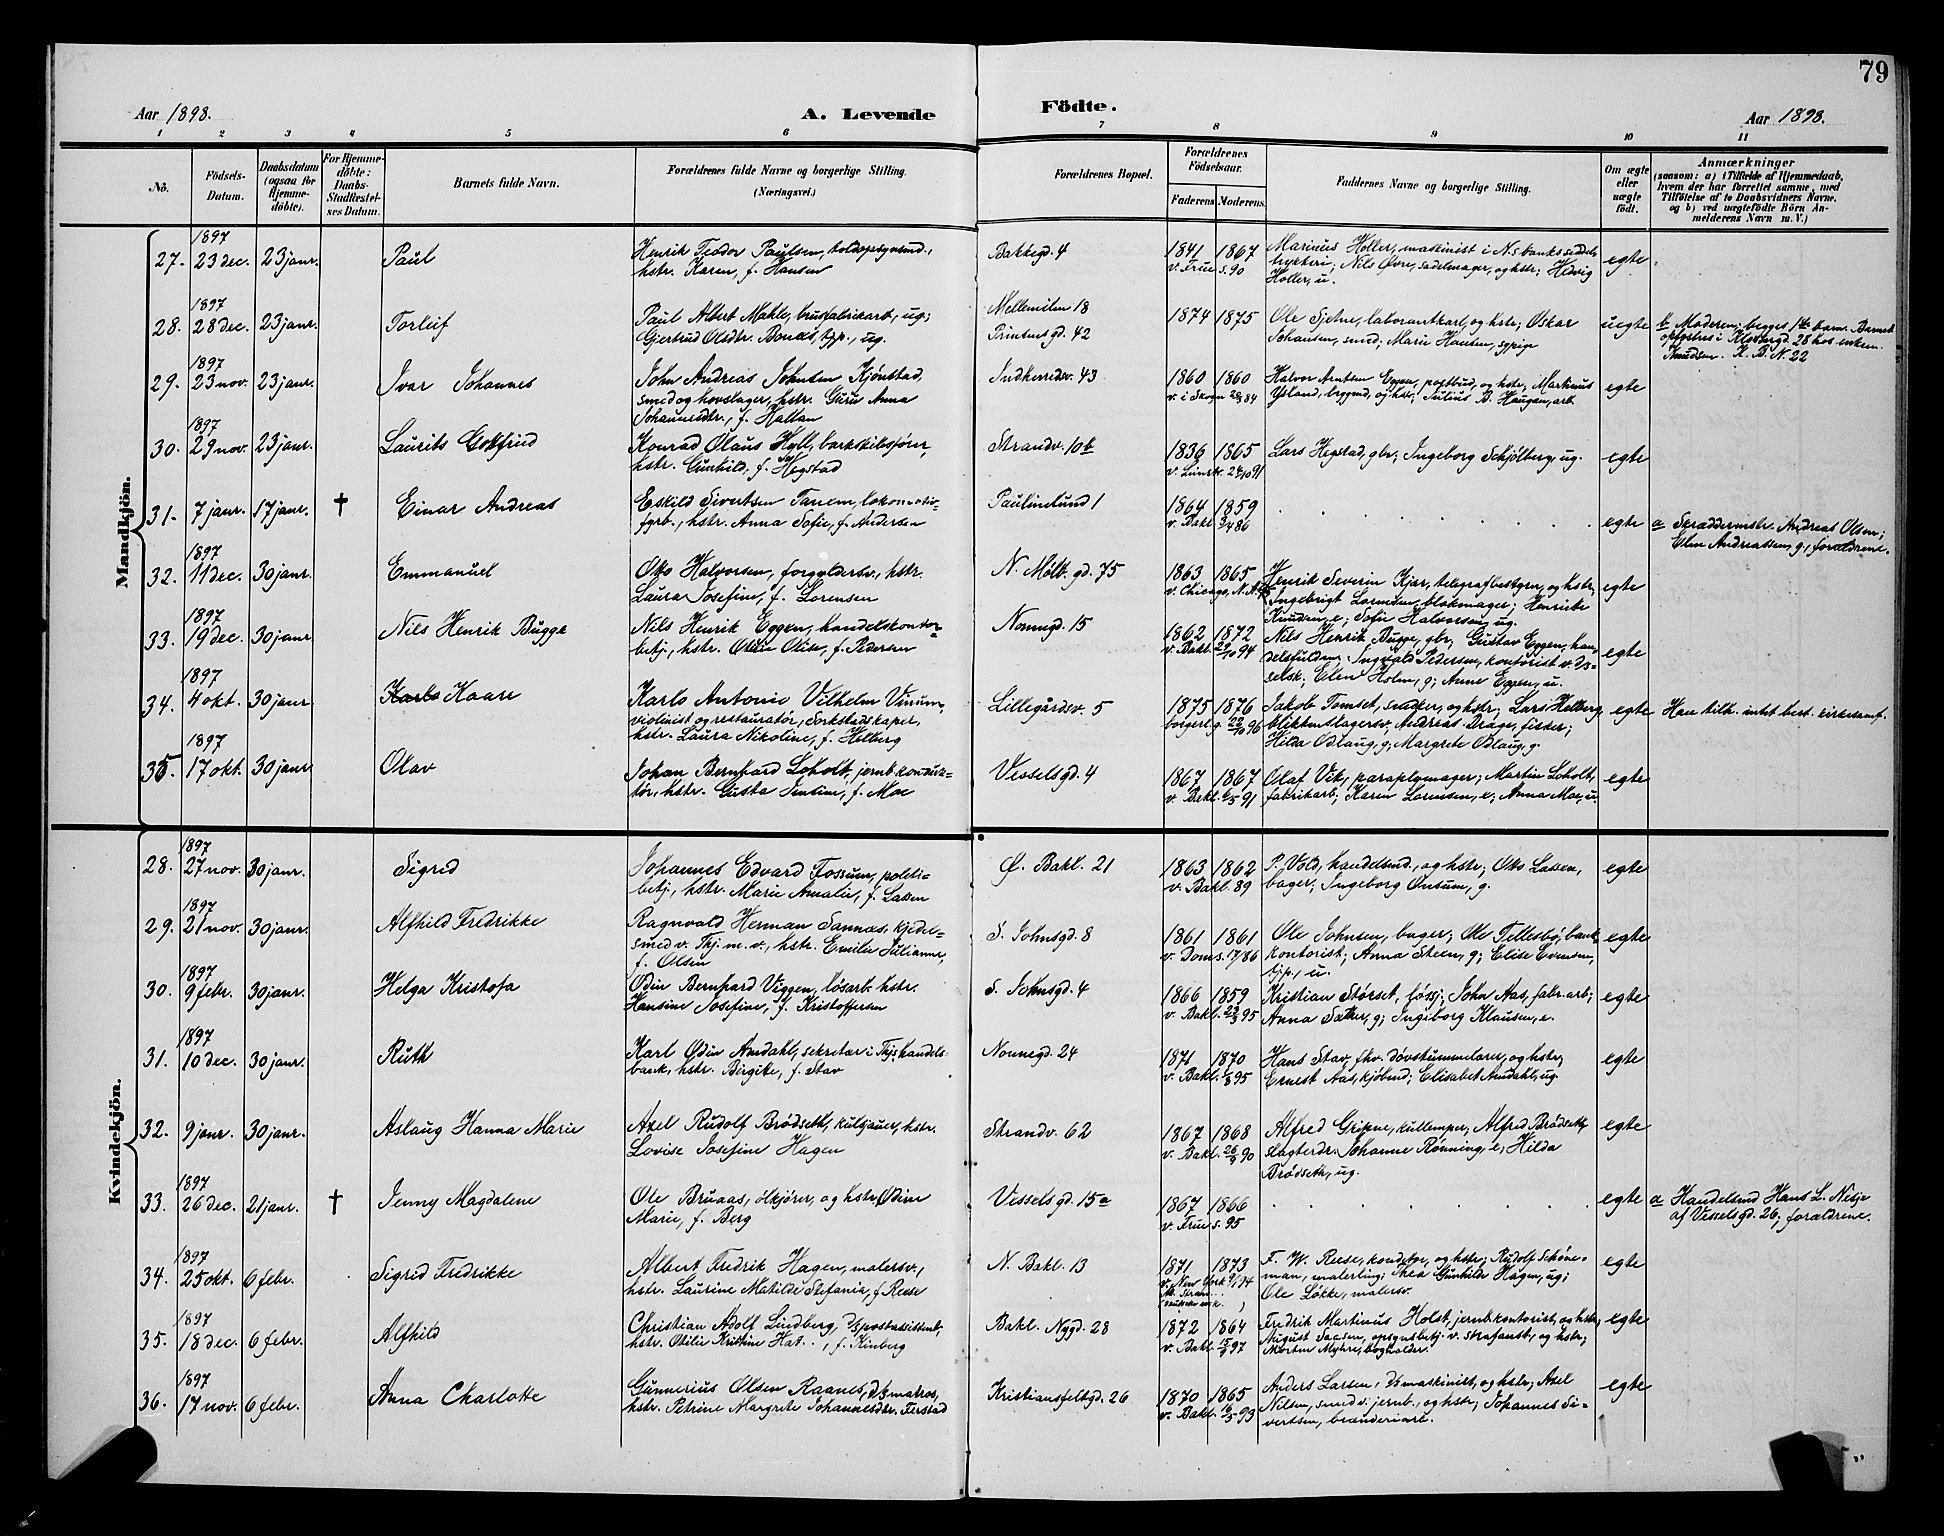 79
Aar 1898. A. Levende Födte. Aar 1898.
1 2 3 4 5 6 7 8 9 10 11
No. Födsels-Datum. Daabsdatum (ogsaa for Hjemmedöbte). For Hjemmedöbte: Daabs-Stadfæstelses Datum. Barnets fulde Navn. Forældrenes fulde Navne og borgerlige Stilling. (Næringsvei.) Forældrenes Bopæl. Forældrenes Födselsaar. Faderens. Moderens. Faddernes Navne og borgerlige Stilling. Om ægte eller uægte födt. Anmærkninger (saasom: a) i Tilfælde af Hjemmedaab, hvem der har forrettet samme, med Tilföielse af to Daabsvidners Navne. og b) ved uægtefödte Börn Anmelderens Navn m. V.)
Mandkjön.
1897
27. 23 dec. 23 janr. Paul Henrik Teodor Paulsen, toldopsynsmd., Bakkegd. 4 1841 1867 Marinus Holler, maskinist i N's banks seddel- egte
hstr. Karen, f. Hansen v. Frue s. 90 trykkeri; Nils Øvre, sadelmager, og hstr; Hedvig
Holler, u.
1897
28. 28 dec. 23 janr. Torleif Paul Albert Mahle, brusfabrikarb., ug; Mellemilen 18 1874 1875 Ole Sjetne, laborantkarl, og hstr; Oskar uegte b Moderen; begges 1ste barn. Barnet
Gjertrud Olsdtr. Bones, tjp., ug. gd. 42 Johansen, smed; Marie Hansen, sypige opfostres i Klostergd. 28 hos enkem.
Knudsen. K. B. N. 22
1897
29. 23 nov. 23 janr. Ivar Johannes John Andreas Johnsen Kjønstad, Indherredsv. 43 1860 1860 Halvor Arntsen Eggen, postbud, og hstr; Martinus egte
smed og hovslager, hstr. Guru Anna v. i Skogn 84 Ystland, brygmd, og hstr; Julius B. Haugan, arb.
Johannesdtr., f. Hallan
1897
30. 29 nov. 23 janr. Laurits Gotfred Konrad Olaus Hyll, barkskibsfører, Strandv. 10b 1836 1865 Lars Hegstad, gbr; Ingeborg Schjølberg, ug. egte
hstr. Gunhild, f. Hegstad 91
31. 7 janr. 17 janr. † Einar Andreas Eskild Sivertsen Tanem, lokomotiv- Paulinelund 1 1864 1859 egte a Skræddermstr. Andreas Olsen;
fyrb., hstr. Anna Sofie, f. Andersen v. Bakl. 86 Elen Andreassen, g; forældrene.
1897
32. 11 dec. 30 janr. Emmanuel Oko Halvorsen, forgylder, hstr. N. Møllebgd. 75 1863 1865 Henrik Severin Kjær, telegrafbestyrer, og hstr; egte
Laura Josefine, f. Lorensen v. Chicago, N. A. Ingebrigt Lorensen, blokmager; Henriette
Knudsen, e; Sofie Halvorsen, ug.
1897
33. 19 dec. 30 janr. Nils Henrik Bugge Nils Henrik Eggen, handelskontor- Nonnegd. 15 1862 1872 Nils Henrik Bugge, gbr, Gustav Eggen, han- egte
betj, hstr. Olise, f. Pedersen v. Bakl. 94 delsfuldm; Ingvald Pedersen, kontorist v.
selsk; Elen Holm, g; Anne Eggen, u.
1897
34. 4 okt. 30 janr. Karlo Kaare Karlo Antonio Vilhelm Vinum, Lillegårdsv. 5 1875 1876 Jakob Tomset, snedker, og hstr; Lars Helberg, egte Han tilh. intet best. kirkesamf.
violinist og restauratør, Sorkstadskaper, borgerl. g. 96 blikkenslagersv; Andreas Drage, fisker;
hstr. Laura Nikoline, f. Helberg Hilda Odlaug, g; Margrete Odlaug, g.
1897
35. 17 okt. 30 janr. Olav Johan Bernhard Loholt, jernb.konduk- Vesselsgd. 4 1867 1867 Olaf Vik, paraplymager; Martin Loholt, egte
tør, hstr. Gusta Jentine, f. Moe v. Bakl. 91 fabrikarb; Karen Lorensen, e; Anna Moe, u.
Kvindekjön.
1897
28. 27 nov. 30 janr. Sigrid Johannes Edvard Fossum, politi- Ø. Bakl. 21 1863 1862 P. Vold, handelsmd., og hstr; Oko Lassen, egte
betj, hstr. Marie Amalie, f. Lassen v. Bakl. 89 bager; Ingeborg Onsum, g.
1897
29. 21 nov. 30 janr. Alfhild Fredrikke Ragnvald Herman Sannæs, kjedel- S. Johnsgd. 8 1861 1861 Ole Johnsen, bager; Ole Tillesbø, bank- egte
smed v. Thj. m. v., hstr. Emilie Julianne, v. Doms. 86 kontorist; Anna Steen, g; Elise Evensen,
f. Olsen tjp., u.
1897
30. 9 febr. 30 janr. Helga Kristofa Odin Bernhard Viggen, løsarb. hstr. S. Johnsgd. 4 1866 1859 Kristian Størset, fossj; John Aas, fabr. arb; egte
Hansine Josefine, f. Kristoffersen v. Bakl. 95 Anna Sæther, g; Ingeborg Klausen, e.
1897
31. 10 dec. 30 janr. Ruth Karl Odin Amdahl, sekretær i Thjs handels- Nonnegd. 24 1871 1870 Hans Stav, fhv. døvstummelærer, og hstr; egte
bank, hstr. Birgitte, f. Stav v. Bakl. 95 Ernest Aas, kjøbmd; Elisabet Amdahl, ug.
32. 9 janr. 30 janr. Aslaug Hanna Marie Axel Rudolf Brødseth, kulsjauer, hstr. Strandv. 62 1867 1868 Alfred Gripne, kullemper; Alfred Brødseth, egte
Lovise Josefine Hagen v. Bakl. 90 slagterdr. Johanne Rønning, e; Hilda
Brødseth, ug.
1897
33. 26 dec. 21 janr. † Jenny Magdalene Ole Bruaas, ølkjører, og hstr. Odine Vesselsgd. 15a 1867 1866 egte a Handelsmd Hans L. Nesje
Marie, f. Berg v. Frue s. 95 af Vesselsgd. 26; forældrene.
1897
34. 25 okt. 6 febr. Sigrid Fredrikke Albert Fredrik Hagen, malersv., N. Bakl. 13 1871 1873 F. W. Reese, konditor, og hstr; Rudolf Schöne- egte
hstr. Laurine Matilde Stefania, f. Reese v. New York 94 man, malerlling; Thea Gunhilde Hagen, ug;
Ole Løkke, malersv.
1897
35. 18 dec. 6 febr. Alfhild Christian Adolf Lindberg, postassistent, Bakl. Nygd. 28 1872 1864 Fredrik Martinus Holst, jernb.kontorist, og hstr; egte
hstr. Otilie Kristine Hat.., f. Kinberg v. Bakl. 97 August Saasen, opsynsbetj. v. strafanst., og hstr;
Morten Myhre, bogholder.
1897
36. 17 nov. 6 febr. Anna Charlotte Gunnerius Olsen Raanes, matros, Kristiansfeltgd. 26 1870 1865 Anders Larsen, maskinist, og hstr; Axel egte
hstr. Petrine Margrete Johannesdtr. Ferstad v. Bakl. 93 Nilsen, smed v. jernb., og hstr; Johannes Si-
vertsen, brænderiarb.